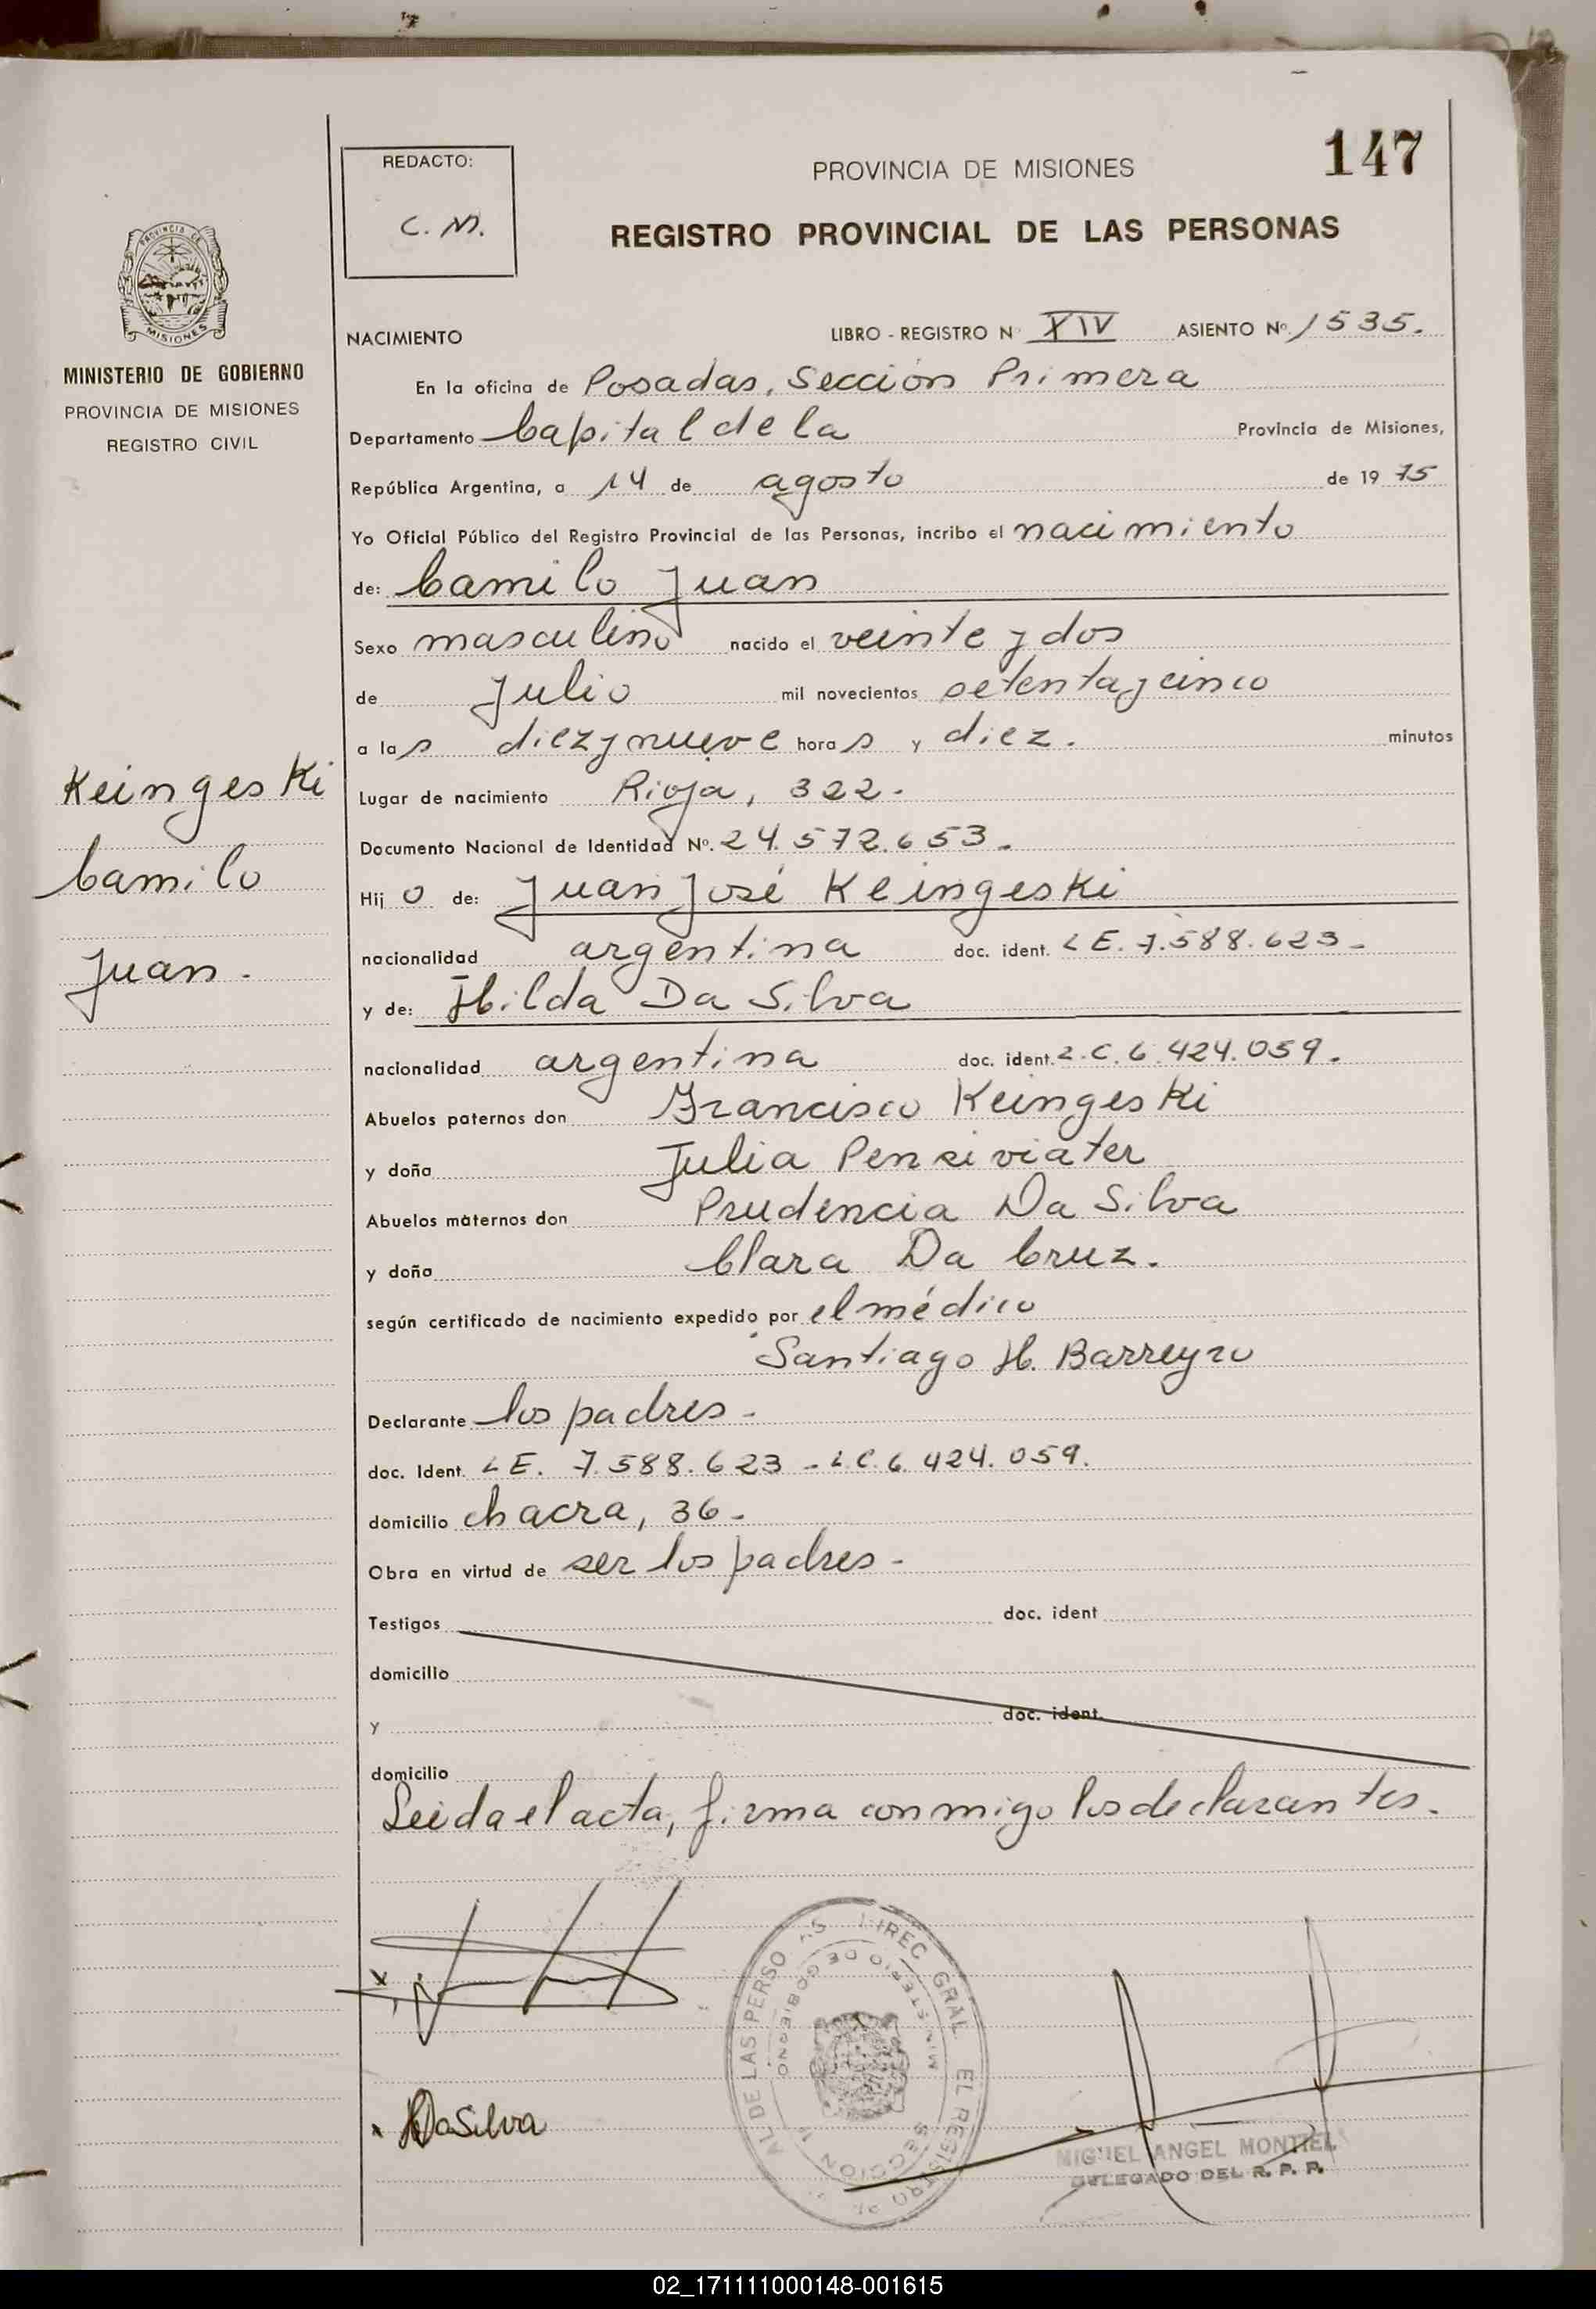 147
REDACTO:
C. M.
PROVINCIA DE MISIONES
REGISTRO PROVINCIAL DE LAS PERSONAS
PROVINCIA DE
MISIONES
MINISTERIO DE GOBIERNO
PROVINCIA DE MISIONES
REGISTRO CIVIL
NACIMIENTO LIBRO - REGISTRO Nº XIV ASIENTO Nº 1535.
En la oficina de Posadas, Sección Primera
Departamento Capital de la Provincia de Misiones,
República Argentina, a 14 de agosto de 1975
Yo Oficial Público del Registro Provincial de las Personas, incribo el nacimiento
de: Camilo Juan
Sexo masculino nacido el veinte y dos
de Julio mil novecientos setenta y cinco
a las diez y nueve horas y diez. minutos
Keingeski
Camilo
Juan.
Lugar de nacimiento Rioja, 322.
Documento Nacional de Identidad Nº. 24.572.653.
Hijo de: Juan José Keingeski
nacionalidad argentina doc. ident. L E. 7.588.623-
y de: Hilda Da Silva
nacionalidad argentina doc. ident. L.C. 6.424.059.
Abuelos paternos don Francisco Keingeski
y doña Julia
Abuelos maternos don Prudencia Da Silva
y doña Clara Da Cruz.
según certificado de nacimiento expedido por el médico
Santiago H. Barreyro
Declarante los padres-
doc. Ident. L E. 7.588.623 - L.C. 6.424.059.
domicilio chacra, 36-
Obra en virtud de ser los padres-
Testigos doc. ident
domicilio
y doc. ident.
domicilio
Leida el acta, firma conmigo los declarantes.
DaSilva
MINISTERIO DE GOBIERNO
MIGUEL ANGEL MONTIEL
DELEGADO DEL R. P. P.
02_171111000148-001615